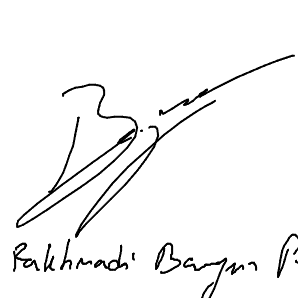 Rakhmadi Bangun P.